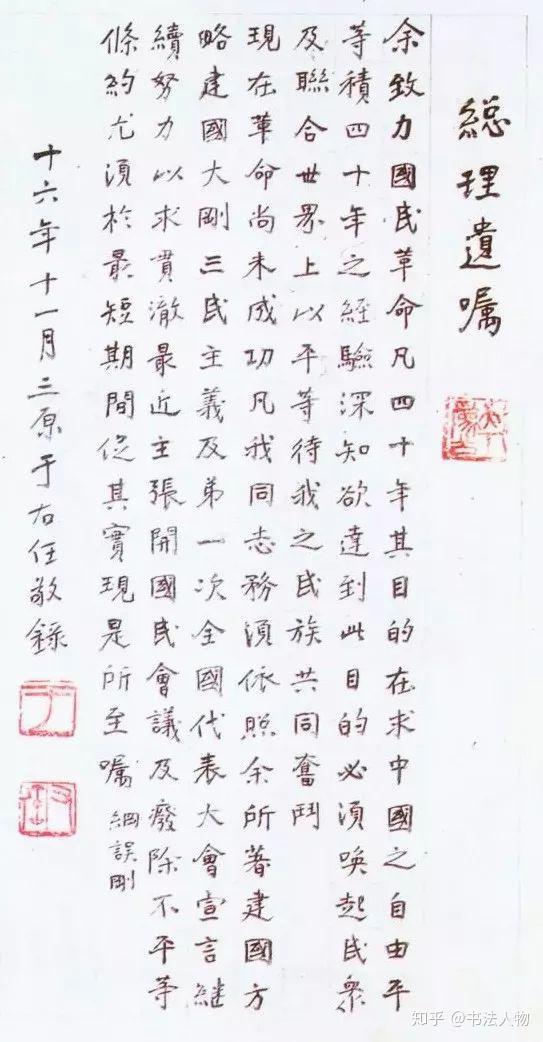 總理遺囑
余致力國民革命凡四十年其目的在求中國之自由平
等積四十年之經驗深知欲達到此目的必須喚起民衆
及聯合世界上以平等待我之民族共同奮鬥
現在革命尚未成功凡我同志務須依照余所著建國方
略建國大剛三民主義及第一次全國代表大會宣言継
續努力以求貫澈最近主張開國民會議及廢除不平等
條約尤須於最短期間促其實現是所至囑 綱誤剛
十六年十一月三原于右任敬錄
知乎 @书法人物